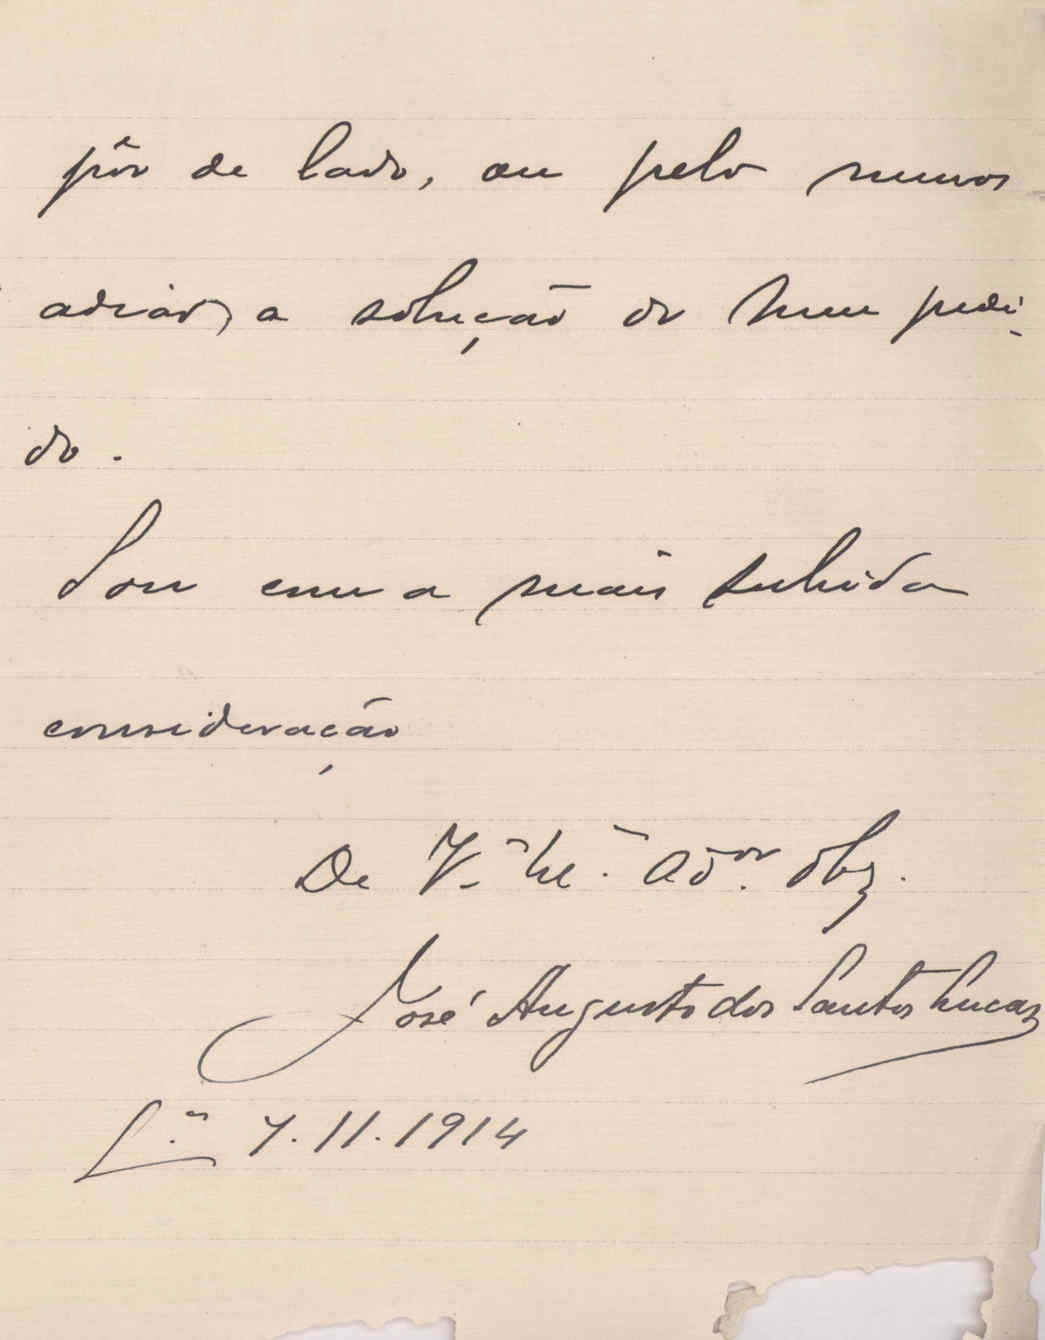 pôr de lado, ou pelo menos
adiar, a solução do meu pedi-
do.
Sou com a mais subida
consideração
De V.ª Ex.ª ad.or obg.
José Augusto dos Santos Lucas
L.ª 7.11.1914